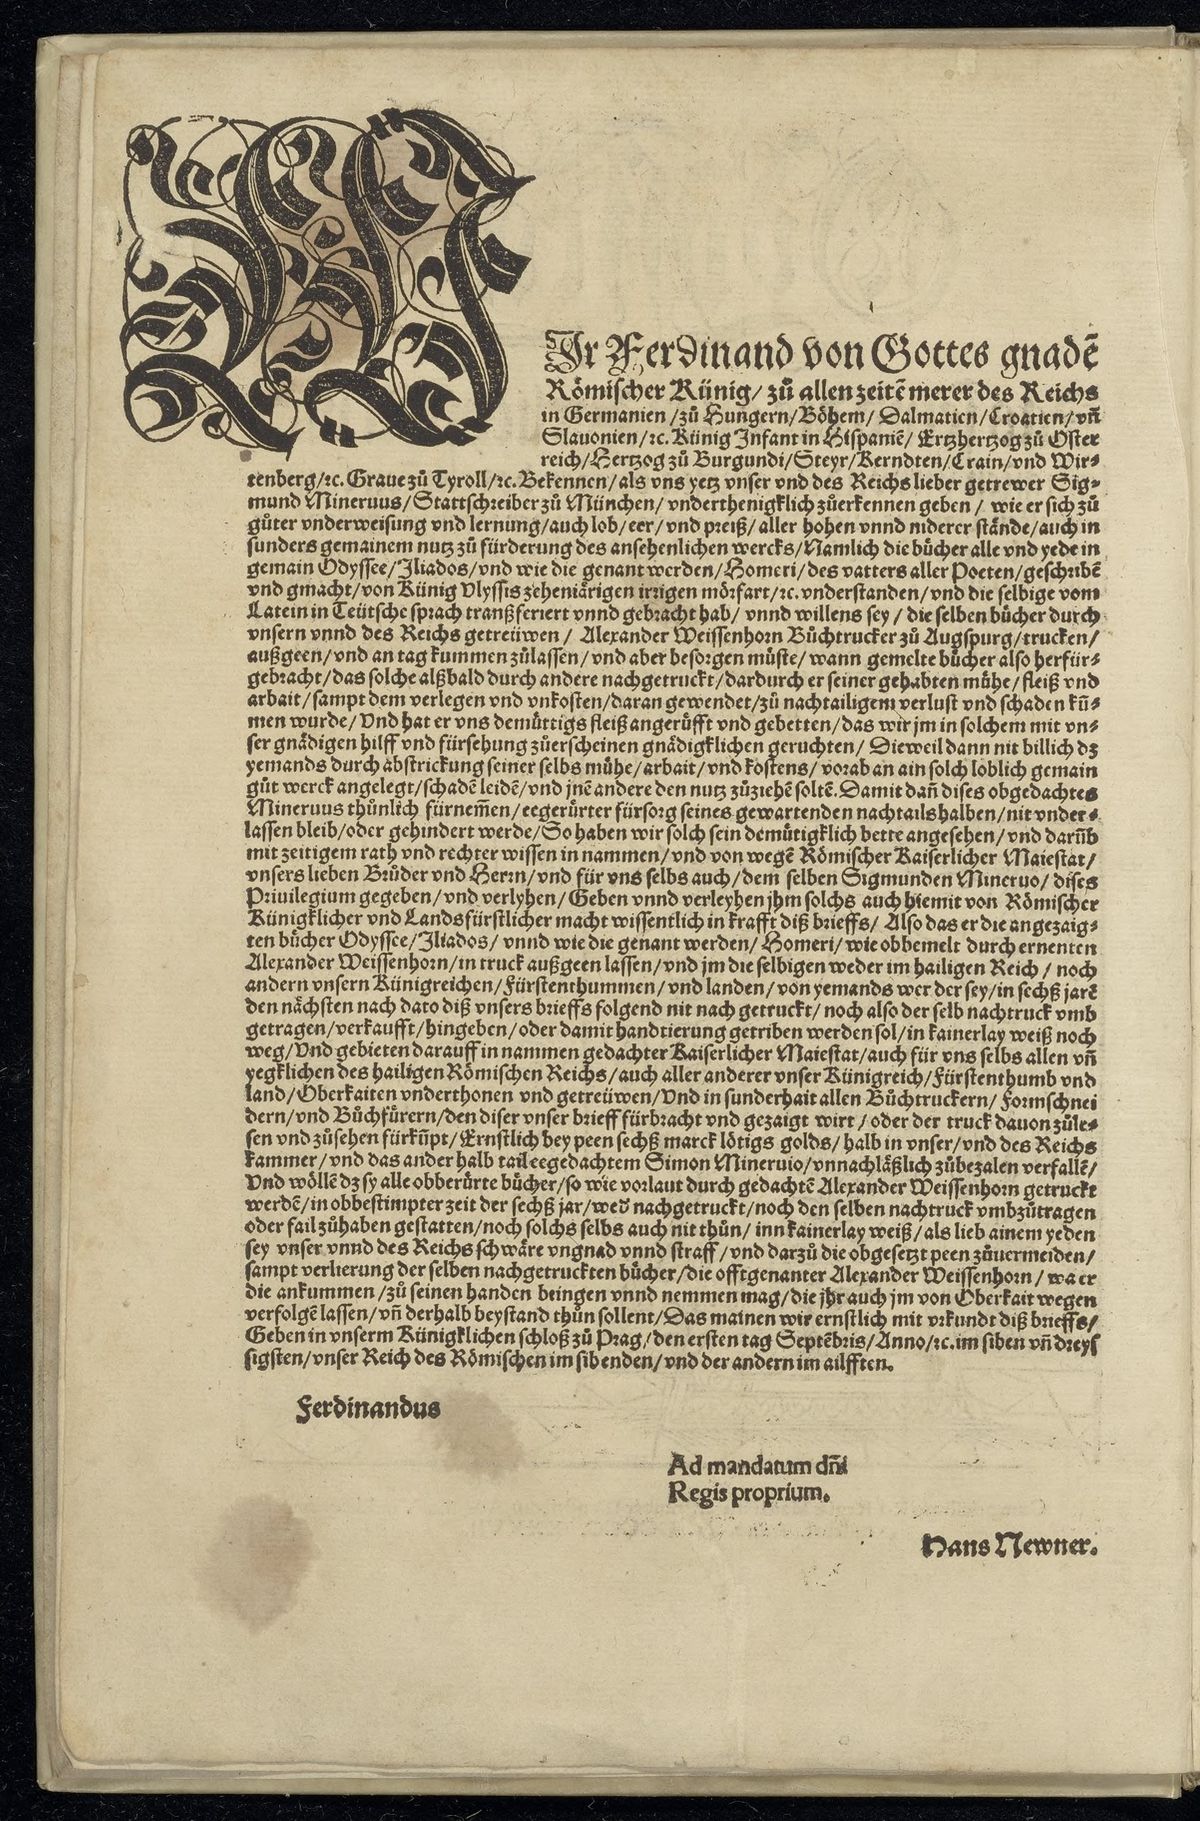 WJr Ferdinand von Gottes gnadẽ
Römischer Künig/ zů allen zeitẽ merer des Reichs
in Germanien/zů Hungern/Böhem/ Dalmatien/Croatien/vñ
Slauonien/ꝛc. Künig Infant in Hispaniẽ/ Ertzhertzog zů Oster
reich/Hertzog zů Burgundi/Steyr/Kerndten/Crain/vnd Wir⸗
tenberg/ꝛc. Graue zů Tyroll/ꝛc. Bekennen/als vns yetz vnser vnd des Reichs lieber getrewer Sig⸗
mund Mineruus/Stattschreiber zů München/ vnderthenigklich zůerkennen geben/ wie er sich zů
gůter vnderweisung vnd lernung/auch lob/eer/vnd preiß/aller hohen vnnd niderer stånde/auch in
sunders gemainem nutz zů fürderung des ansehenlichen wercks/Namlich die bücher alle vnd yede in
gemain Odyssee/Iliados/vnd wie die genant werden/Homeri/des vatters aller Poeten/geschribẽ
vnd gmacht/von Künig Vlyssis zeheniårigen irrigen mörfart/ꝛc. vnderstanden/vnd die selbige vom
Latein in Teütsche sprach tranßferiert vnnd gebracht hab/ vnnd willens sey/ die selben bücher durch
vnsern vnnd des Reichs getreüwen/ Alexander Weissenhorn Bůchtrucker zů Augspurg/trucken/
außgeen/vnd an tag kummen zůlassen/vnd aber besorgen müste/wann gemelte bücher also herfür⸗
gebracht/das solche alßbald durch andere nachgetruckt/dardurch er seiner gehabten mühe/fleiß vnd
arbait/sampt dem verlegen vnd vnkosten/daran gewendet/zů nachtailigem verlust vnd schaden kũ⸗
men wurde/Vnd hat er vns demüttigs fleiß angerůfft vnd gebetten/das wir jm in solchem mit vn⸗
ser gnådigen hilff vnd fürsehung zůerscheinen gnådigklichen geruchten/ Dieweil dann nit billich dz
yemands durch abstrickung seiner selbs mühe/arbait/vnd kostens/vorab an ain solch loblich gemain
gůt werck angelegt/schadẽ leidẽ/vnd jnẽ andere den nutz zůziehẽ soltẽ. Damit dañ dises obgedachtes
Mineruus thůnlich fürnem̃en/eegerürter fürsorg seines gewartenden nachtails halben/nit vnder⸗
lassen bleib/oder gehindert werde/So haben wir solch sein demütigklich bette angesehen/vnd darũb
mit zeitigem rath vnd rechter wissen in nammen/vnd von wegẽ Römischer Kaiserlicher Maiestat/
vnsers lieben Brůder vnd Herrn/vnd für vns selbs auch/dem selben Sigmunden Mineruo/ dises
Priuilegium gegeben/vnd verlyhen/Geben vnnd verleyhen jhm solchs auch hiemit von Römischer
Künigklicher vnd Landsfürstlicher macht wissentlich in krafft diß brieffs/ Also das er die angezaig⸗
ten bücher Odyssee/Iliados/ vnnd wie die genant werden/Homeri/wie obbemelt durch ernenten
Alexander Weissenhorn/in truck außgeen lassen/vnd jm die selbigen weder im hailigen Reich/ noch
andern vnsern Künigreichen/Fürstenthummen/vnd landen/von yemands wer der sey/in sechß jarẽ
den nåchsten nach dato diß vnsers brieffs folgend nit nach getruckt/noch also der selb nachtruck vmb
getragen/verkaufft/hingeben/oder damit handtierung getriben werden sol/in kainerlay weiß noch
weg/Vnd gebieten darauff in nammen gedachter Kaiserlicher Maiestat/auch für vns selbs allen vñ
yegklichen des hailigen Römischen Reichs/auch aller anderer vnser Künigreich/Fürstenthumb vnd
land/Oberkaiten vnderthonen vnd getreüwen/Vnd in sunderhait allen Bůchtruckern/Formschnei
dern/vnd Bůchfürern/den diser vnser brieff fürbracht vnd gezaigt wirt/oder der truck dauon zůle⸗
sen vnd zůsehen fürkũpt/Ernstlich bey peen sechß marck lötigs golds/halb in vnser/vnd des Reichs
kammer/vnd das ander halb tail eegedachtem Simon Mineruio/vnnachlåßlich zůbezalen verfallẽ/
Vnd wöllẽ dz sy alle obberürte bücher/so wie vorlaut durch gedachtẽ Alexander Weissenhorn getruckt
werdẽ/in obbestimpter zeit der sechß jar/wed̃ nachgetruckt/noch den selben nachtruck vmbzůtragen
oder fail zůhaben gestatten/noch solchs selbs auch nit thůn/ inn kainerlay weiß/als lieb ainem yeden
sey vnser vnnd des Reichs schwåre vngnad vnnd straff/vnd darzů die obgesetzt peen zůuermeiden/
sampt verlierung der selben nachgetruckten bücher/die offtgenanter Alexander Weissenhorn/ wa er
die ankummen/zů seinen handen bringen vnnd nemmen mag/die jhr auch jm von Oberkait wegen
verfolgẽ lassen/vñ derhalb beystand thůn sollent/Das mainen wir ernstlich mit vrkundt diß brieffs/
Geben in vnserm Künigklichen schloß zů Prag/den ersten tag Septẽbris/Anno/ꝛc. im siben vñ dreys
sigsten/vnser Reich des Römischen im sibenden/vnd der andern im ailfften.
Ferdinandus
Ad mandatum dñi
Regis proprium.
Hans Newner.